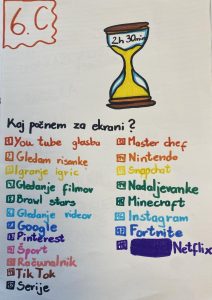 6. C
2h 30min
Kaj počnem za ekrani?
You tube glasba
Gledam risanke
Igranje igric
Gledanje filmov
Brawl stars
Gledanje videov
Google
Pinterest
Šport
Računalnik
Tik Tok
Serije
Master chef
Nintendo
Snapchat
Nadaljevanke
Minecraft
Instagram
Fortnite
Netflix